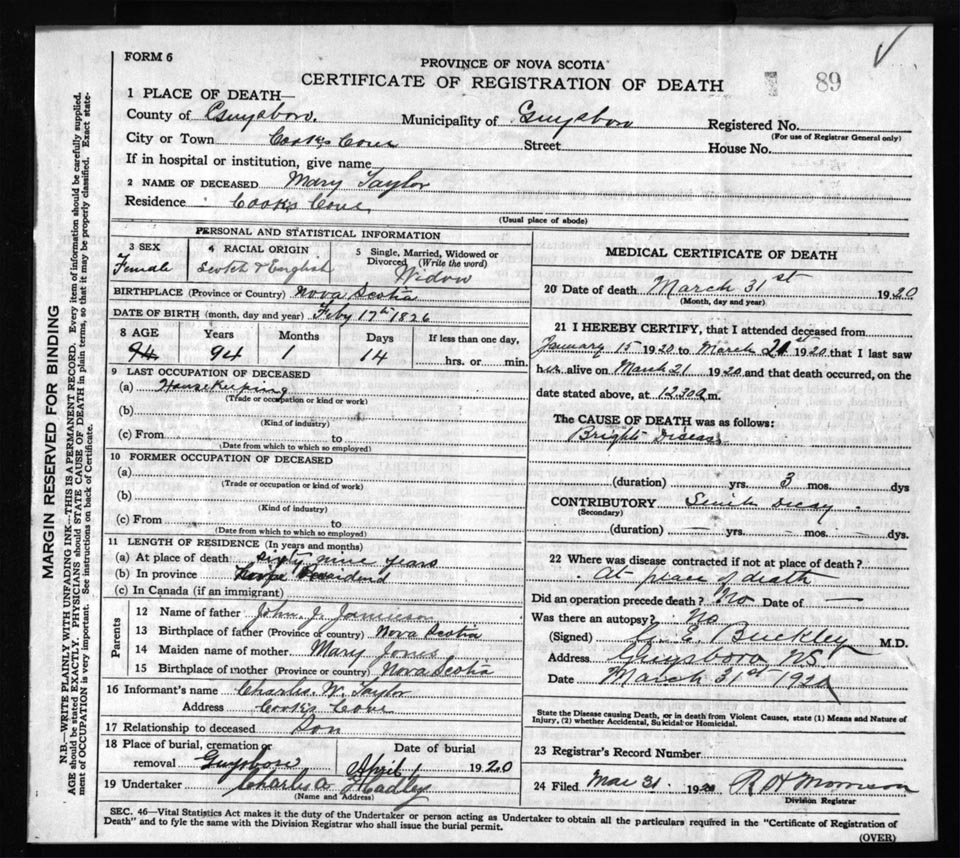 FORM 6
PROVINCE OF NOVA SCOTIA
CERTIFICATE OF REGISTRATION OF DEATH 89
1 PLACE OF DEATH—
County of Guysboro. Municipality of Guysboro Registered No.
(For use of Registrar General only)
City or Town Cooks Cove Street House No.
If in hospital or institution, give name
2 NAME OF DECEASED Mary Taylor
Residence Cooks Cove
(Usual place of abode)
PERSONAL AND STATISTICAL INFORMATION
3 SEX Female
4 RACIAL ORIGIN Scotch & English
5 Single, Married, Widowed or Divorced (Write the word) Widow
BIRTHPLACE (Province or Country) Nova Scotia
DATE OF BIRTH (month, day and year) Feby 17th 1826
8 AGE Years Months Days If less than one day,
94 94 1 14 hrs. or min.
9 LAST OCCUPATION OF DECEASED
(a) Housekeeping
(Trade or occupation or kind or work)
(b)
(Kind of industry)
(c) From to
(Date from which to which so employed)
10 FORMER OCCUPATION OF DECEASED
(a)
(Trade or occupation or kind of work)
(b)
(Kind of industry)
(c) From to
(Date from which to which so employed)
11 LENGTH OF RESIDENCE (In years and months)
(a) At place of death sixty nine years
(b) In province
(c) In Canada (if an immigrant)
Parents
12 Name of father John J. Jamieson
13 Birthplace of father (Province or country) Nova Scotia
14 Maiden name of mother Mary Jones
15 Birthplace of mother (Province or country) Nova Scotia
16 Informant's name Charles W. Taylor
Address Cooks Cove
17 Relationship to deceased Son
18 Place of burial, cremation or removal Guysboro
Date of burial April 1 1920
19 Undertaker Charles A Hadley
(Name and Address)
MEDICAL CERTIFICATE OF DEATH
20 Date of death March 31st 1920
(Month, day and year)
21 I HEREBY CERTIFY, that I attended deceased from
January 15 1920 to March 21st 1920 that I last saw
her alive on March 21 1920 and that death occurred, on the
date stated above, at 12.30 m.
The CAUSE OF DEATH was as follows:
Brights Disease
(duration) yrs. 3 mos. dys
CONTRIBUTORY Senile decay
(Secondary)
(duration) — yrs. — mos. — dys.
22 Where was disease contracted if not at place of death?
At place of death
Did an operation precede death? No Date of —
Was there an autopsy? No
(Signed) E. Buckley M.D.
Address Guysboro NS
Date March 31st 1920
State the Disease causing Death, or in death from Violent Causes, state (1) Means and Nature of
Injury, (2) whether Accidental, Suicidal or Homicidal.
23 Registrar's Record Number
24 Filed Mar 31. 1920 R H Morrison
Division Registrar
SEC. 46—Vital Statistics Act makes it the duty of the Undertaker or person acting as Undertaker to obtain all the particulars required in the "Certificate of Registration of
Death" and to fyle the same with the Division Registrar who shall issue the burial permit.
(OVER)
MARGIN RESERVED FOR BINDING
N.B.—WRITE PLAINLY WITH UNFADING INK—THIS IS A PERMANENT RECORD. Every item of information should be carefully supplied.
AGE should be stated EXACTLY. PHYSICIANS should STATE CAUSE OF DEATH in plain terms, so that it may be properly classified. Exact state-
ment of OCCUPATION is very important. See instructions on back of Certificate.